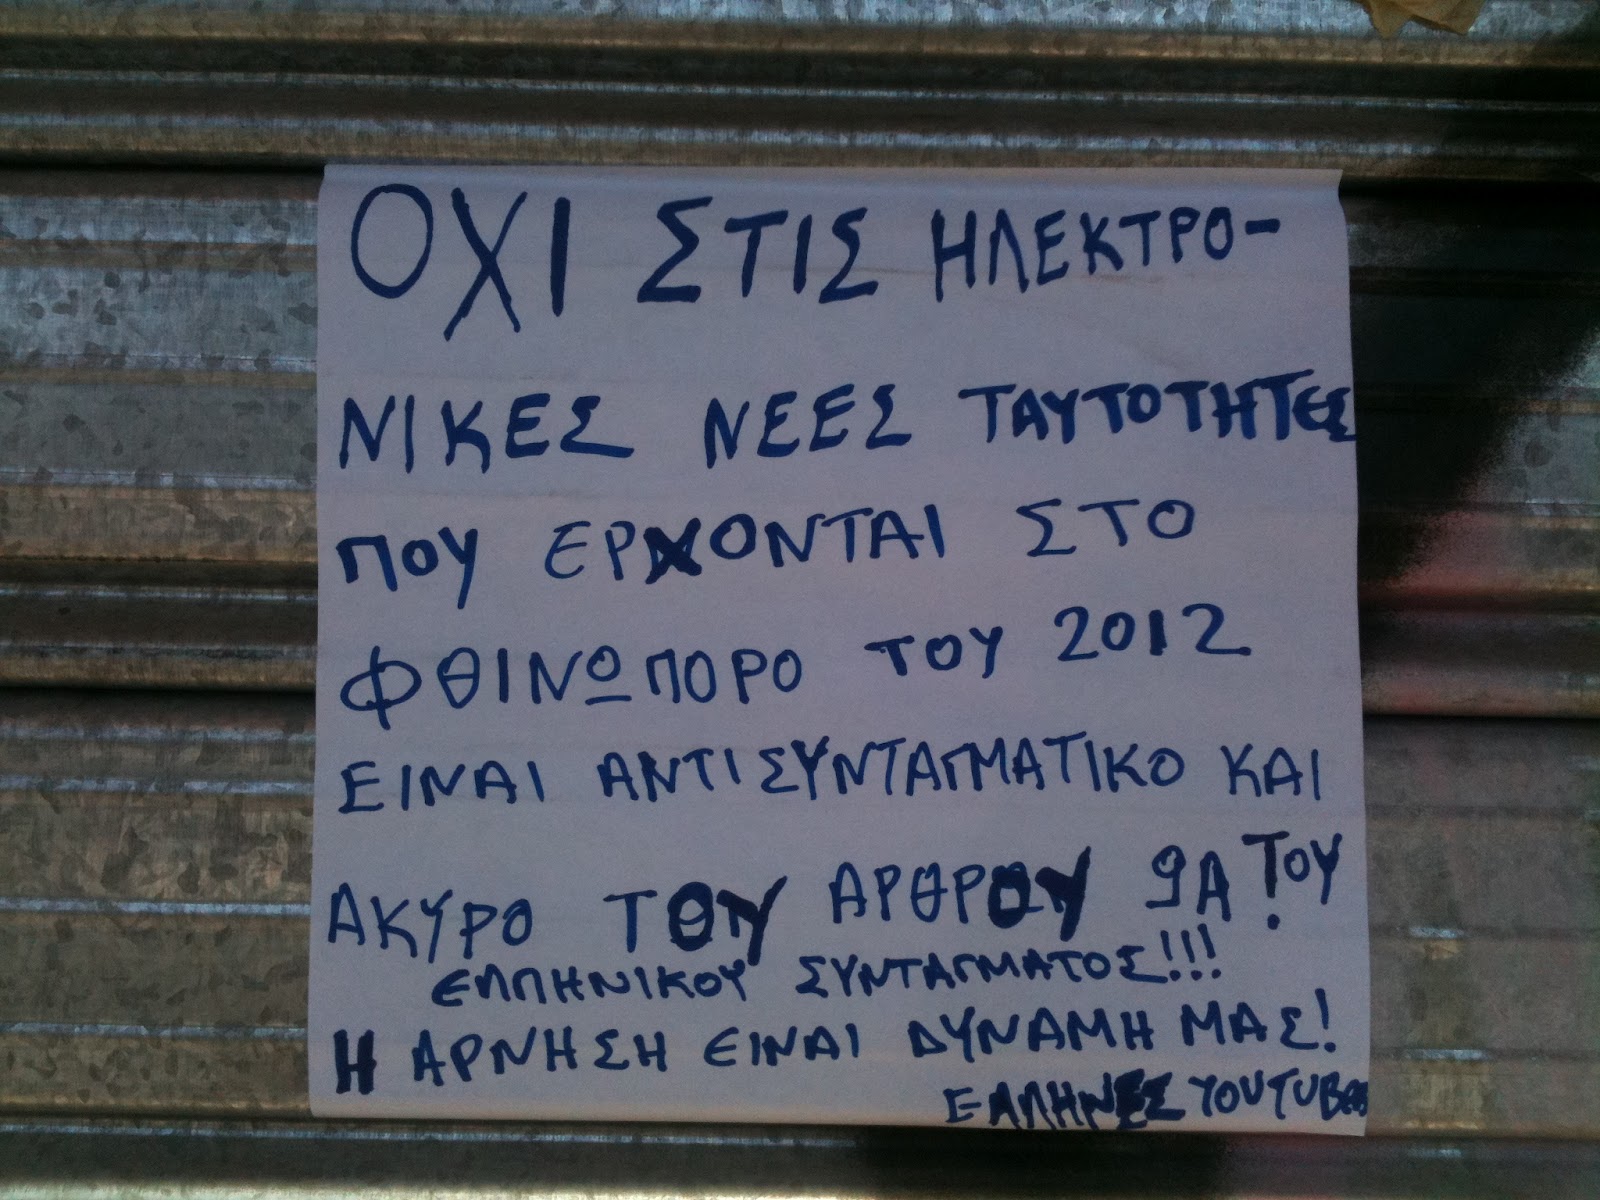 ΟΧΙ ΣΤΙΣ ΗΛΕΚΤΡΟ-
ΝΙΚΕΣ ΝΕΕΣ ΤΑΥΤΟΤΗΤΕΣ
ΠΟΥ ΕΡΧΟΝΤΑΙ ΣΤΟ
ΦΘΙΝΩΠΟΡΟ ΤΟΥ 2012
ΕΙΝΑΙ ΑΝΤΙΣΥΝΤΑΓΜΑΤΙΚΟ ΚΑΙ
ΑΚΥΡΟ ΤΟΥ ΑΡΘΡΟΥ 9Α ΤΟΥ
ΕΛΛΗΝΙΚΟΥ ΣΥΝΤΑΓΜΑΤΟΣ!!!
Η ΑΡΝΗΣΗ ΕΙΝΑΙ ΔΥΝΑΜΗ ΜΑΣ!
ΕΛΛΗΝΕΣ